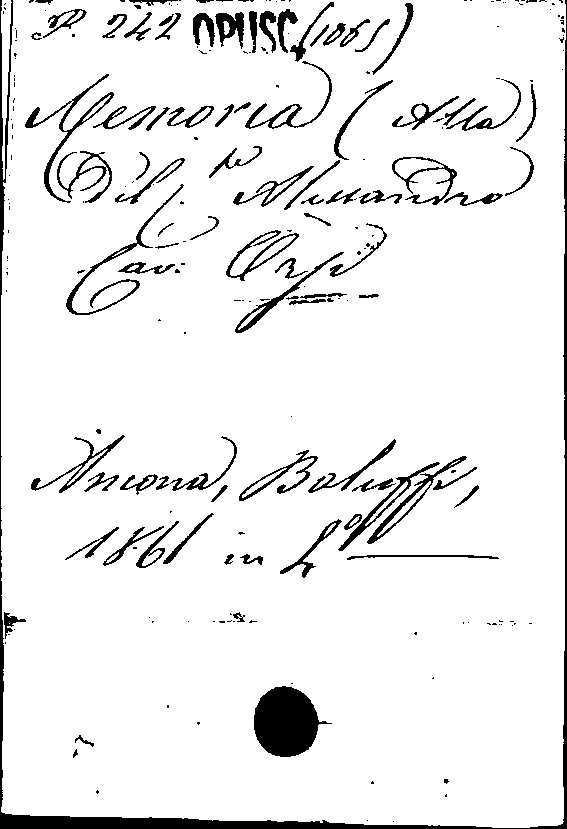 P. 242 OPUSC. (1065)
Memoria (Alla)
Del f.te Alessandro
Cav. Orsi
Ancona, Baluffi,
1861 in 4º